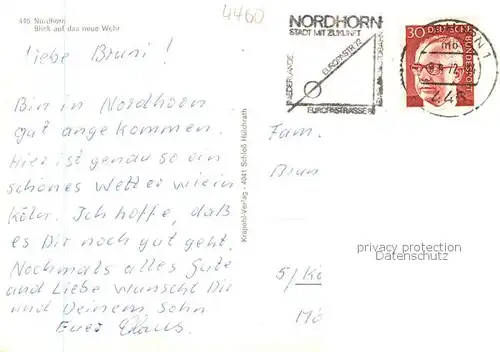 446 Nordhorn
Blick auf das neue Wehr
4460
NORDHORN
STADT MIT ZUKUNFT
NIEDERLANDE
EUROPASTR. 72
EUROPASTRASSE 8
30
DEUTSCHE BUNDESPOST
1
mb
446
Liebe Bruni!
Bin in Nordhorn
gut angekommen.
Hier ist genau so ein
schönes Wetter wie in
Köln. Ich hoffe, daß
es Dir noch gut geht.
Nochmals alles Gute
und Liebe wünscht Dir
und Deinem Sohn
Euer Klaus.
Krapohl-Verlag - 4041 Schloß Hülchrath
Fam.
Brun
5/Kö
Mö
privacy protection
Datenschutz